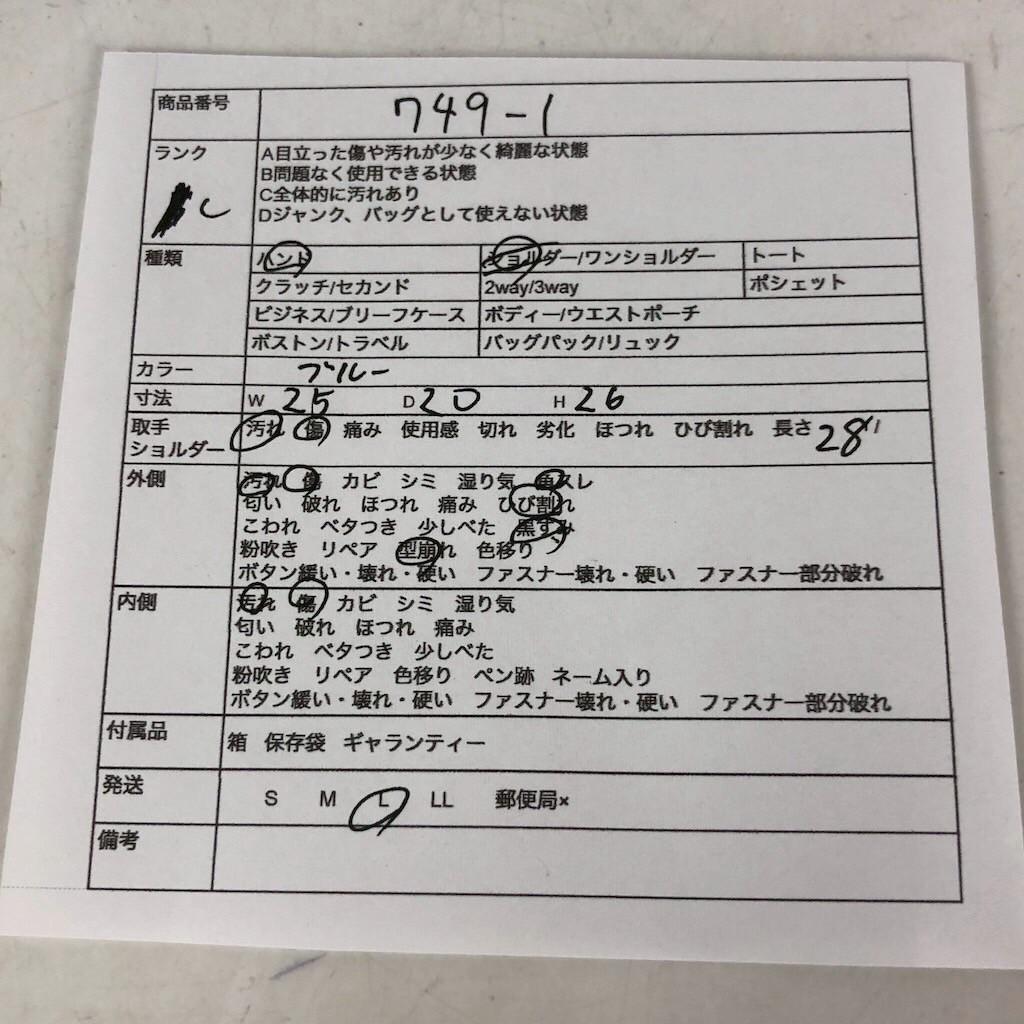 商品番号 749-1
ランク C
A目立った傷や汚れが少なく綺麗な状態
B問題なく使用できる状態
C全体的に汚れあり
Dジャンク、バッグとして使えない状態
種類 ハンド ショルダー/ワンショルダー トート
クラッチ/セカンド 2way/3way ポシェット
ビジネス/ブリーフケース ボディー/ウエストポーチ
ボストン/トラベル バッグパック/リュック
カラー ブルー
寸法 W 25 D 20 H 26
取手 汚れ 傷 痛み 使用感 切れ 劣化 ほつれ ひび割れ 長さ 28
ショルダー
外側 汚れ 傷 カビ シミ 湿り気 角スレ
匂い 破れ ほつれ 痛み ひび割れ
こわれ ベタつき 少しべた 黒ずみ
粉吹き リペア 型崩れ 色移り
ボタン緩い・壊れ・硬い ファスナー壊れ・硬い ファスナー部分破れ
内側 汚れ 傷 カビ シミ 湿り気
匂い 破れ ほつれ 痛み
こわれ ベタつき 少しべた
粉吹き リペア 色移り ペン跡 ネーム入り
ボタン緩い・壊れ・硬い ファスナー壊れ・硬い ファスナー部分破れ
付属品 箱 保存袋 ギャランティー
発送 S M L LL 郵便局×
備考